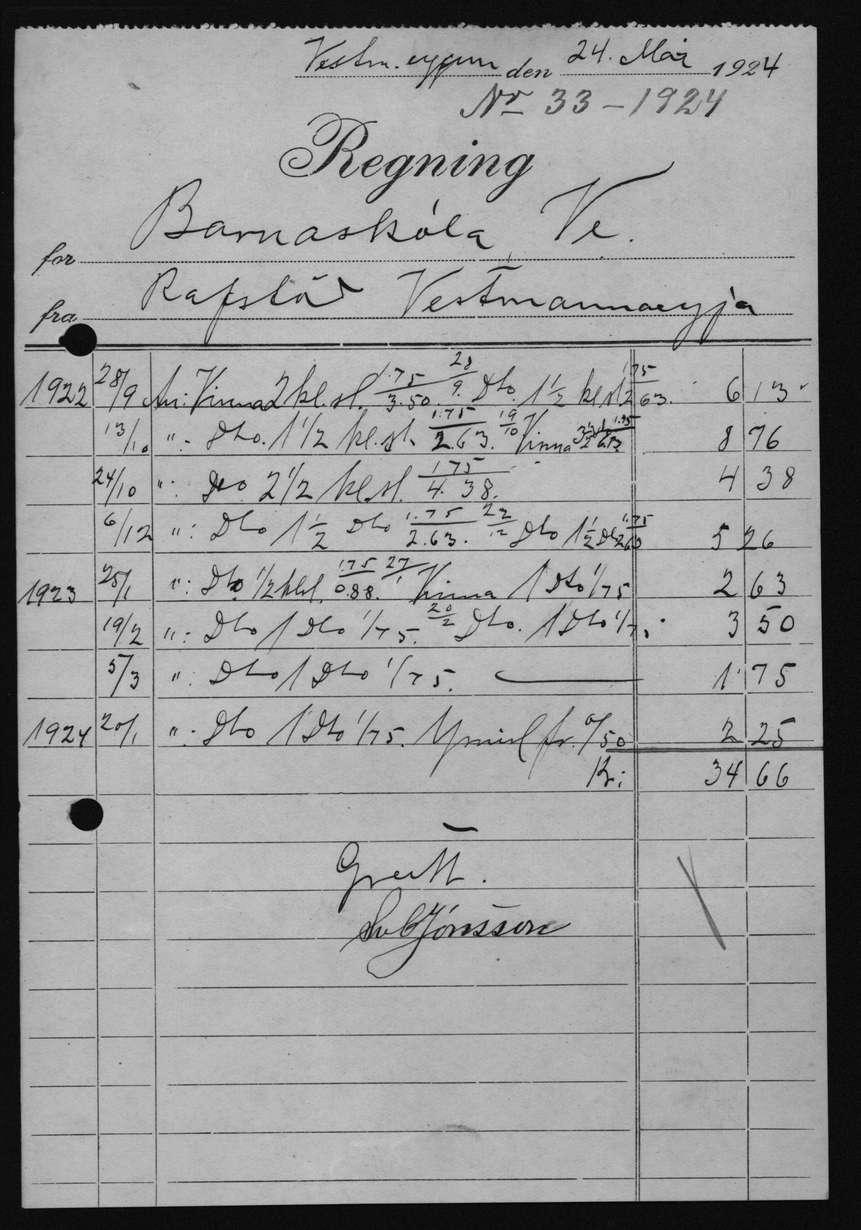 Vestm.eyjum den 24. Mar 1924
Nr 33 - 1924
Regning
for Barnaskóla Ve.
fra Rafstöð Vestmannaeyja
1922 28/9 An: Vinna 2 kl.st. 1.75/3.50. 28/9. Dto. 1 1/2 kl.st 1.75/2.63. 6 13
13/10 ": Dto. 1 1/2 kl.st. 1.75/2.63. 19/10 Vinna 8 76
24/10 ": Do 2 1/2 kl.st. 1.75/4.38. 4 38
6/12 ": Dto 1 1/2 Dto 1.75/2.63. 22/12 Dto 1 1/2 Dto 1.75/2.63 5 26
1923 25/1 ": Dto 1/2 kl.st 1.75/0.88. 27/1 Vinna 1 Dto 1/75 2 63
19/2 ": Dto 1 Dto 1/75. 20/2 Dto. 1 Dto 1/75 3 50
5/3 ": Dto 1 Dto 1/75. 1 75
1924 20/1 ": Dto 1 Dto 1/75. fr. 0/50 2 25
Kr: 34 66
Greitt.
Jónsson